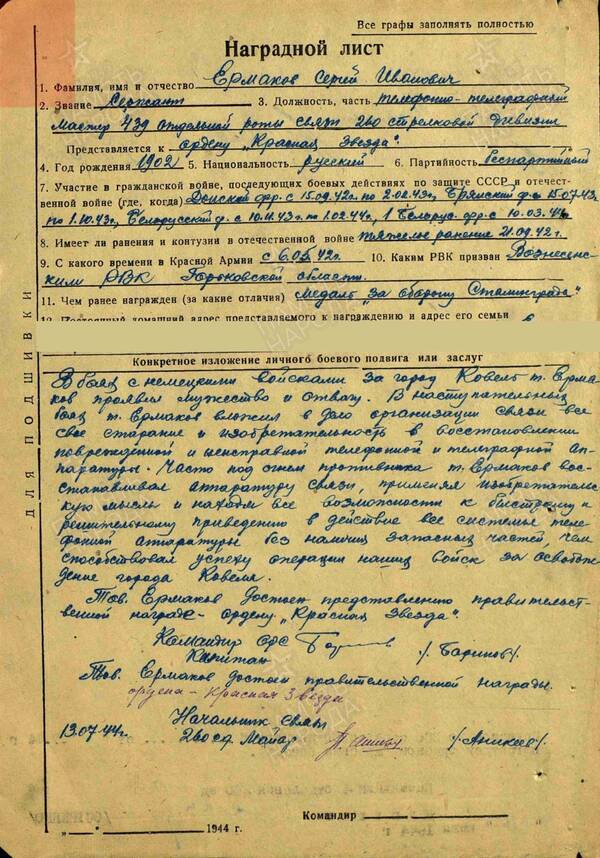 Все графы заполнять полностью
Наградной лист
1. Фамилия, имя и отчество Ермаков Сергей Иванович
2. Звание Сержант 3. Должность, часть телефонно-телеграфный
мастер 439 отдельной роты связи 260 стрелковой дивизии
Представляется к ордену „Красная Звезда".
4. Год рождения 1902 5. Национальность русский 6. Партийность беспартийный
7. Участие в гражданской войне, последующих боевых действиях по защите СССР и отечест-
венной войне (где, когда) Донской фр. с 15.09.42г. по 2.02.43г, Брянский ф. с 15.07.43
по 1.10.43г, Белорусский ф. с 10.11.43г. по 1.02.44г, 1 Белорус. фр. с 10.03.44
8. Имеет ли ранения и контузии в отечественной войне тяжелое ранение 21.09.42г.
9. С какого времени в Красной Армии с 6.05.42г. 10. Каким РВК призван Вознесенс-
ким РВК Горьковской области.
11. Чем ранее награжден (за какие отличия) Медаль „За оборону Сталинграда"
12. Постоянный домашний адрес представляемого к награждению и адрес его семьи
Конкретное изложение личного боевого подвига или заслуг
В боях с немецкими войсками за город Ковель т. Ерма-
ков проявил мужество и отвагу. В наступательных
боях т. Ермаков вложил в дело организации связи все
свое старание и изобретательность в восстановлении
поврежденной и неисправной телефонной и телеграфной ап-
паратуры. Часто под огнем противника т. Ермаков вос-
станавливал аппаратуру связи, применяя изобретательс-
кую мысль и находя все возможности к быстрому и
решительному приведению в действие все системы теле-
фонной аппаратуры без наличия запасных частей, чем
способствовал успеху операции наших войск за освобож-
дение города Ковеля.
Тов. Ермаков достоен представлению правительст-
венной награде - ордену „Красная Звезда".
Командир орс
Капитан /Баринов/.
Тов. Ермаков достоен правительственной награды
ордена - Красная Звезда
Начальник связи
13.07.44г. 260 сд Майор /Аникеев/.
Командир
„ " 1944 г.
ДЛЯ ПОДШИВКИ